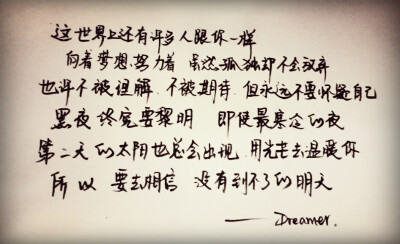 这世界上还有许多人跟你一样
向着梦想努力着 虽然孤独却不会放弃
也许不被理解 不被期待 但永远不要怀疑自己
黑夜终究要黎明 即使最寒冷的夜
第二天的太阳也总会出现 用光芒去温暖你
所以 要去相信 没有到不了的明天
——Dreamer.